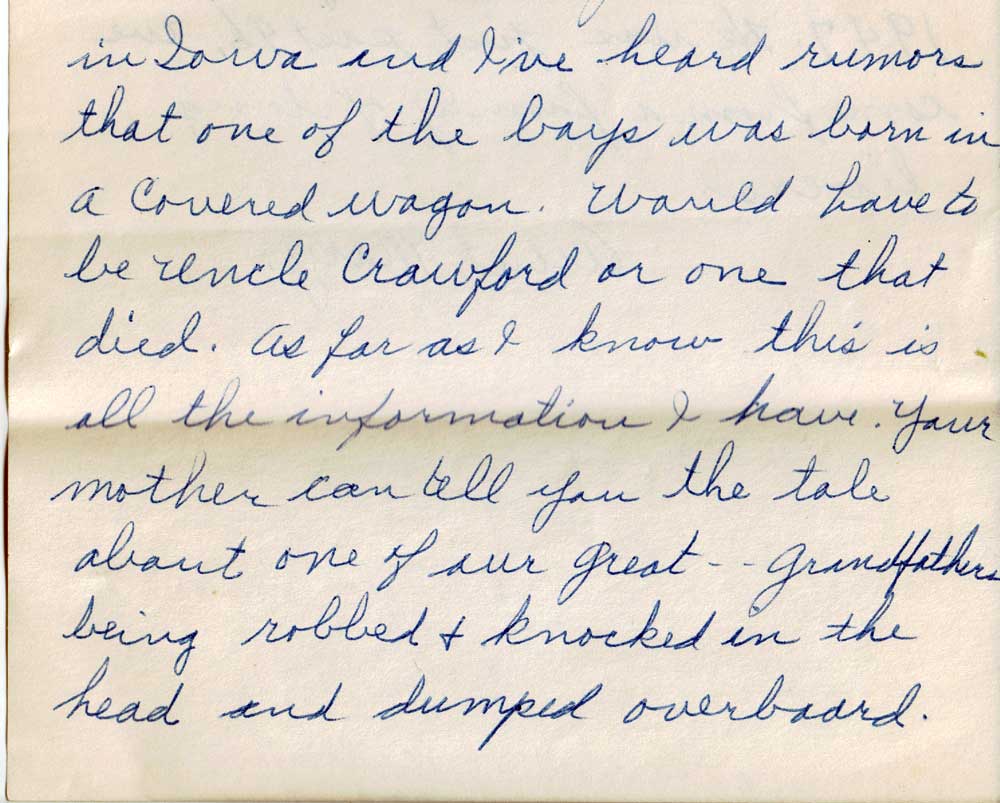 in Iowa and I've heard rumors
that one of the boys was born in
a Covered wagon. Would have to
be Uncle Crawford or one that
died. As far as I know this is
all the information I have. Your
mother can tell you the tale
about one of our great -- grandfathers
being robbed & knocked in the
head and dumped overboard.